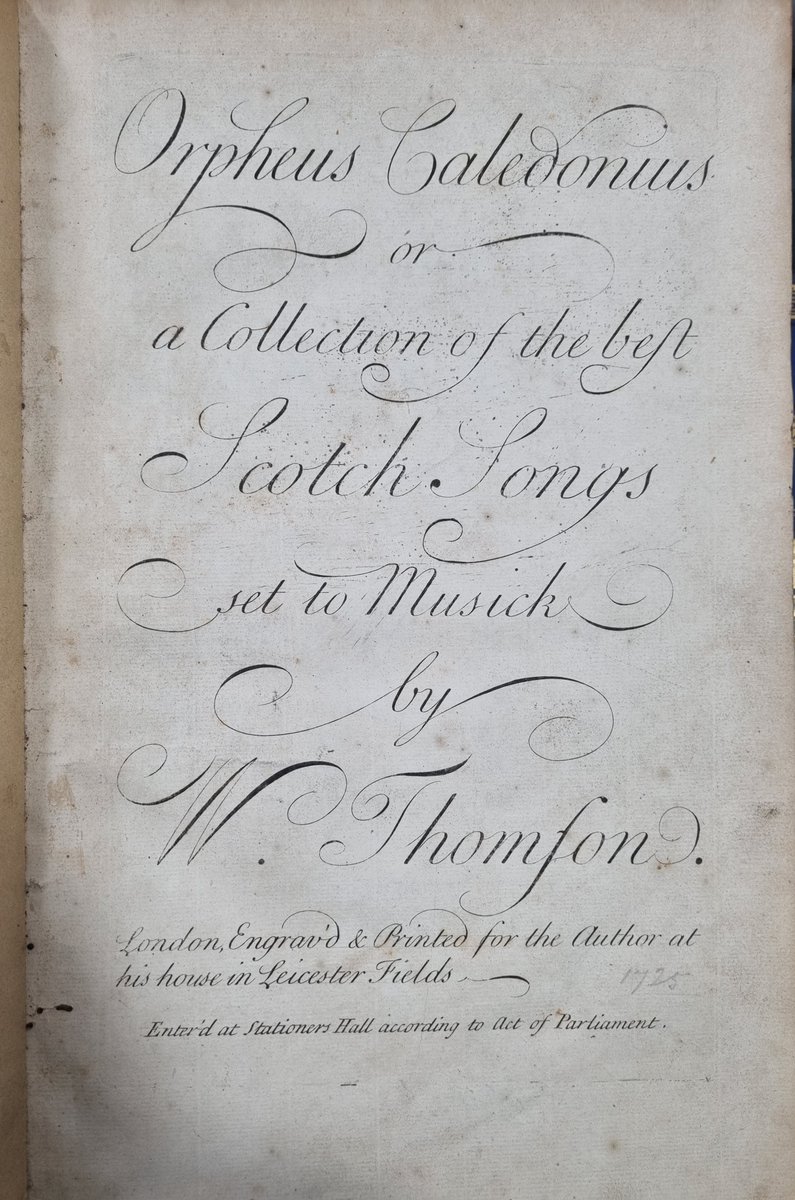 Orpheus Caledonius
or
a Collection of the beſt
Scotch Songs
set to Musick
by
W. Thomſon.
London, Engrav'd & Printed for the Author at
his house in Leicester Fields
1725
Enter'd at Stationers Hall according to Act of Parliament.